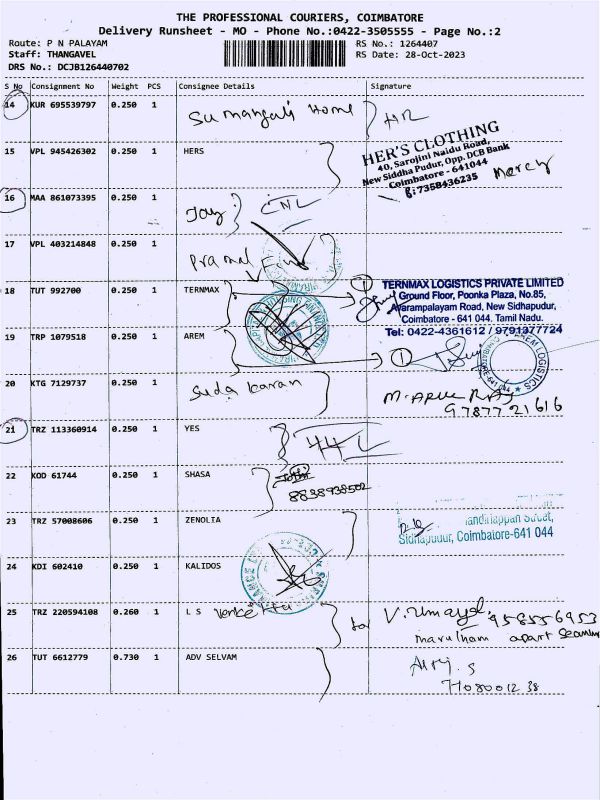 THE PROFESSIONAL COURIERS, COIMBATORE
Delivery Runsheet - MO - Phone No.:0422-3505555 - Page No.:2
Route: P N PALAYAM RS No.: 1264407
Staff: THANGAVEL RS Date: 28-Oct-2023
DRS No.: DCJB126440702
S No Consignment No Weight PCS Consignee Details Signature
14 KUR 695539797 0.250 1 Sumangali Home
15 VPL 945426302 0.250 1 HERS
HER'S CLOTHING
40, Sarojini Naidu Road,
New Siddha Pudur, Opp. DCB Bank
Coimbatore - 641044
7358436235
Mercy
16 MAA 861073395 0.250 1 Jay
17 VPL 403214848 0.250 1
18 TUT 992700 0.250 1 TERNMAX 1
TERNMAX LOGISTICS PRIVATE LIMITED
Ground Floor, Poonka Plaza, No.85,
Avarampalayam Road, New Sidhapudur,
Coimbatore - 641 044. Tamil Nadu.
Tel: 0422-4361612 / 9791377724
19 TRP 1079518 0.250 1 AREM 1
AREM LOGISTICS
COIMBATORE-641 044
20 KTG 7129737 0.250 1 Suda karan
97877 21616
21 TRZ 113360914 0.250 1 YES
22 KOD 61744 0.250 1 SHASA
8838938502
23 TRZ 57008606 0.250 1 ZENOLIA
Sidhapudur, Coimbatore-641 044
24 KDI 602410 0.250 1 KALIDOS
25 TRZ 220594108 0.260 1 L S
958556953
26 TUT 6612779 0.730 1 ADV SELVAM